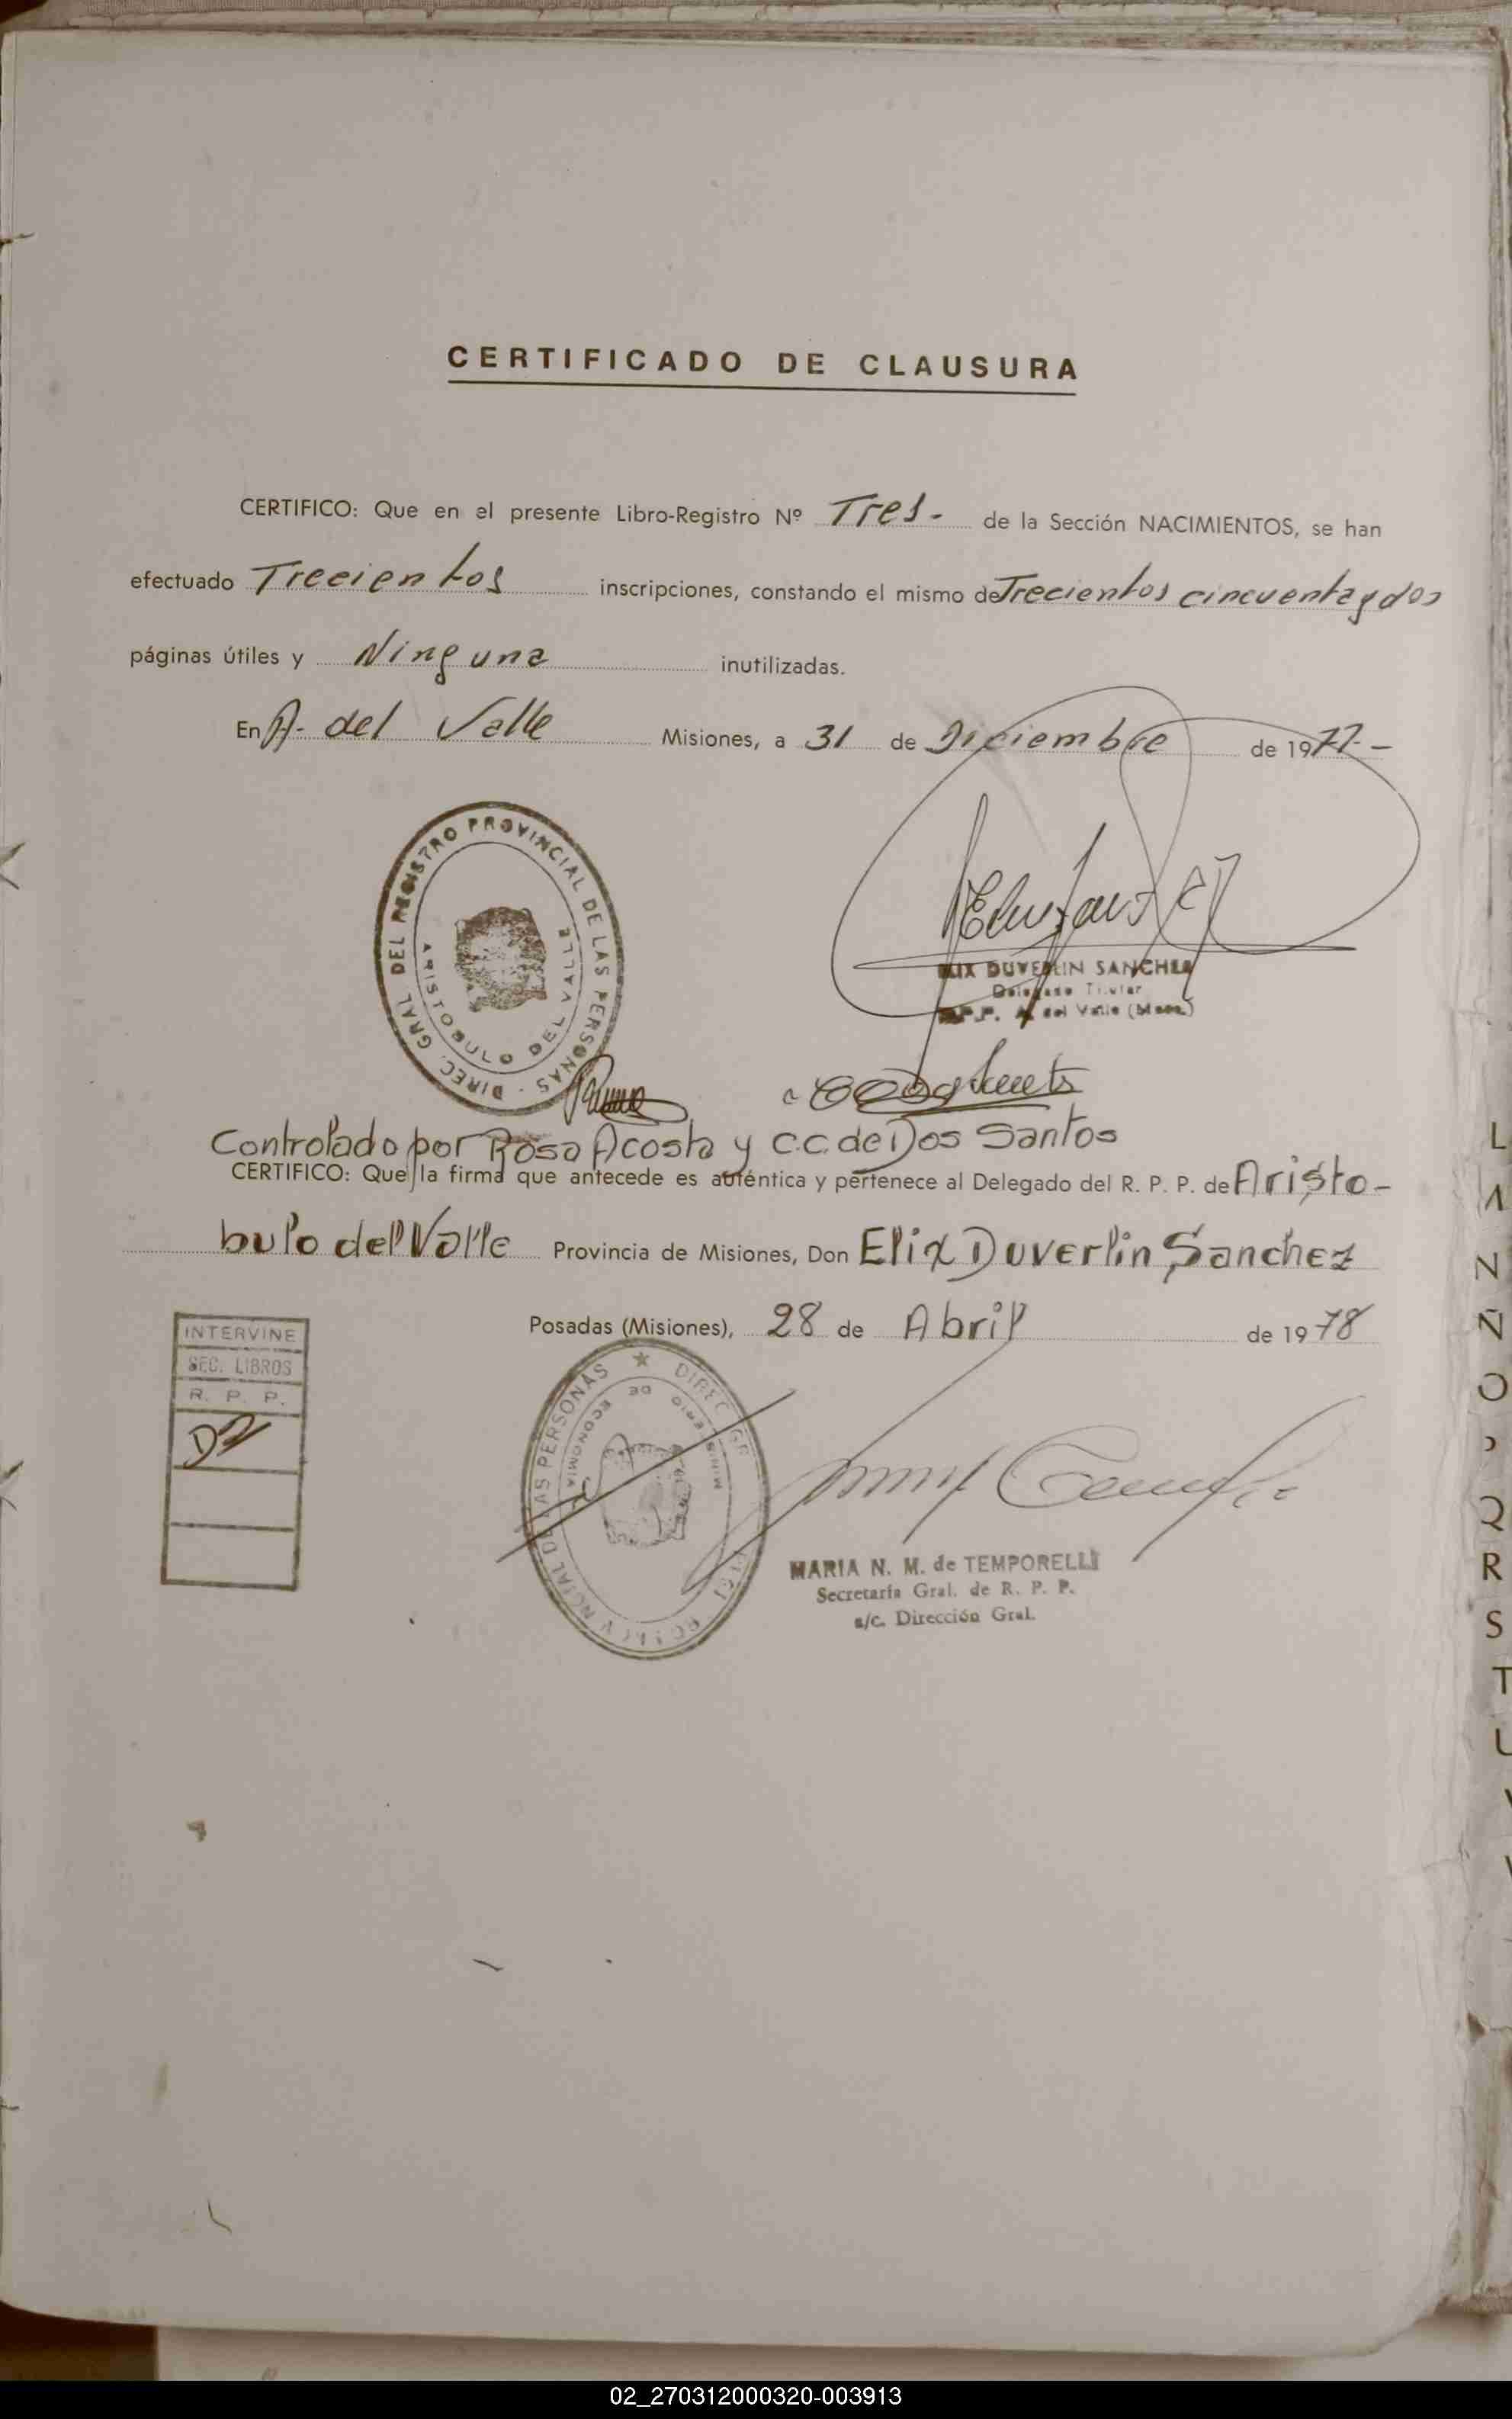 CERTIFICADO DE CLAUSURA
CERTIFICO: Que en el presente Libro-Registro Nº Tres- de la Sección NACIMIENTOS, se han
efectuado Trecientos inscripciones, constando el mismo de Trecientos cincuenta y dos
páginas útiles y Ninguna inutilizadas.
En A. del Valle Misiones, a 31 de Diciembre de 1977-
DIREC. GRAL. DEL REGISTRO PROVINCIAL DE LAS PERSONAS
ARISTOBULO DEL VALLE
ELIX DUVERLIN SANCHEZ
Delegado Titular
R.P.P. A. del Valle (Mnes.)
Controlado por Rosa Acosta y C.C. de Dos Santos
CERTIFICO: Que la firma que antecede es auténtica y pertenece al Delegado del R. P. P. de Aristo-
bulo del Valle Provincia de Misiones, Don Elix Duverlin Sanchez
Posadas (Misiones), 28 de Abril de 1978
INTERVINE
SEC. LIBROS
R. P. P.
MINISTERIO DE ECONOMIA
MARIA N. M. de TEMPORELLI
Secretaría Gral. de R. P. P.
a/c. Dirección Gral.
L
N
Ñ
O
Q
R
S
T
U
02_270312000320-003913